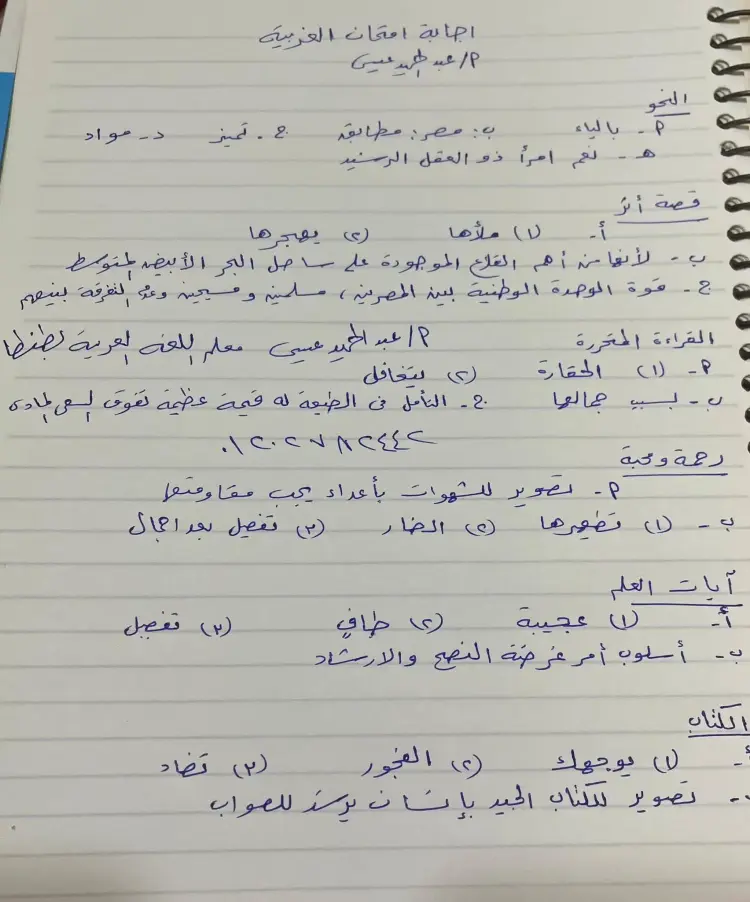 اجابة امتحان الغربية
م/ عبد الحميد عيسى
النحو
م- بالياء ب: مصر: مطابقة ج- تمييز د- مواد
هـ - نعم امرأ ذو العقل الرشيد
قصة أثر
أ- (١) ملأها (٢) يهجرها
ب- لأنها من أهم القلاع الموجودة على ساحل البحر الأبيض المتوسط
ج- قوة الوحدة الوطنية بين المصرين، مسلمين ومسيحين وعدم التفرقة بينهم
القراءة المتحررة م/ عبد الحميد عيسى معلم اللغة العربية بطنطا
م- (١) الحقارة (٢) يتغافل
ب- بسبب جمالها ج- التأمل فى الطبيعة له قيمة عظيمة تفوق السعى المادى
٠١٢٠٢٧٨٢٤٤٢
رحمة ومحبة
م- تصوير للشهوات بأعداء يجب مقاومتها
ب- (١) تطهيرها (٢) الضار (٣) تفصيل بعد اجمال
آيات العلم
أ- (١) عجيبة (٢) طافٍ (٣) تفصيل
ب- أسلوب أمر غرضة النصح والارشاد
الكتاب
أ- (١) يوجهك (٢) الفجور (٣) تضاد
ب- تصوير للكتاب الجيد بإنسان يرشد للصواب